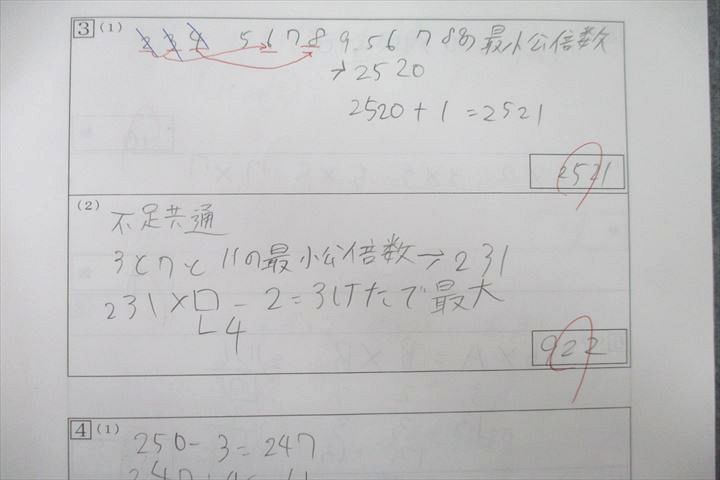 3 (1) 2 3 4 5 6 7 8 9 5 6 7 8 9の最小公倍数
→2520
2520+1=2521
2521
(2) 不足共通
3と7と11の最小公倍数→231
231×□-2=3けたで最大
4
922
4 (1) 250-3=247